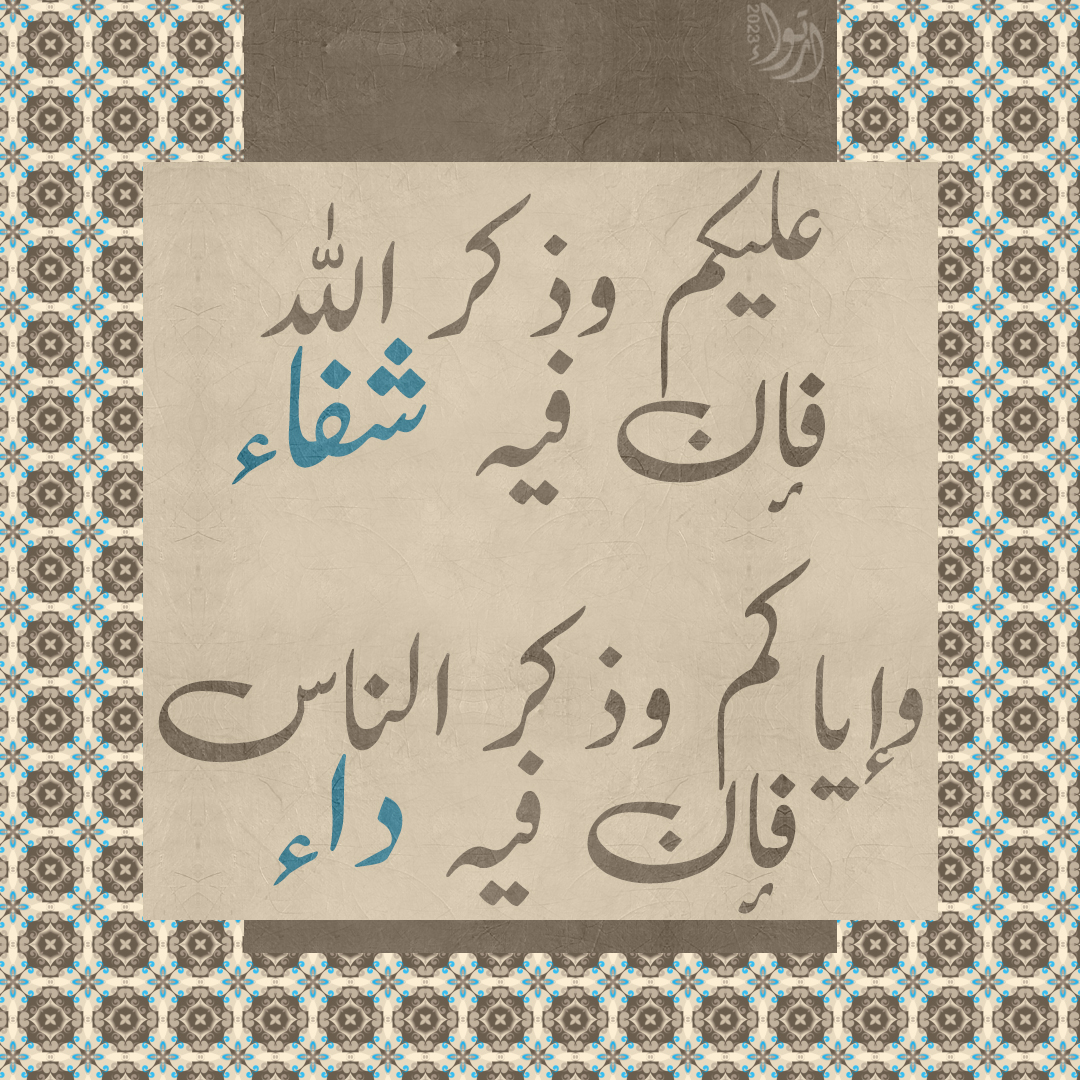 ارتوا
2023
عليكم وذكر الله
فإن فيه شفاء
وإياكم وذكر الناس
فإن فيه داء